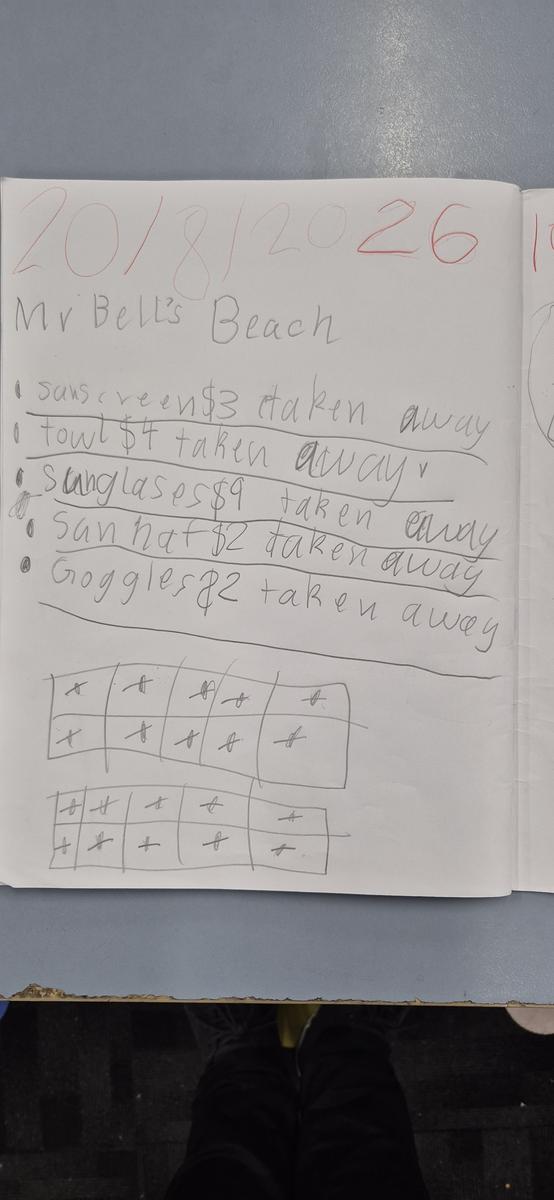 20/8/2026
Mr Bell's Beach
sanscreen $3 taken away
towl $4 taken away
Sunglases $9 taken away
San hat $2 taken away
Goggles $2 taken away